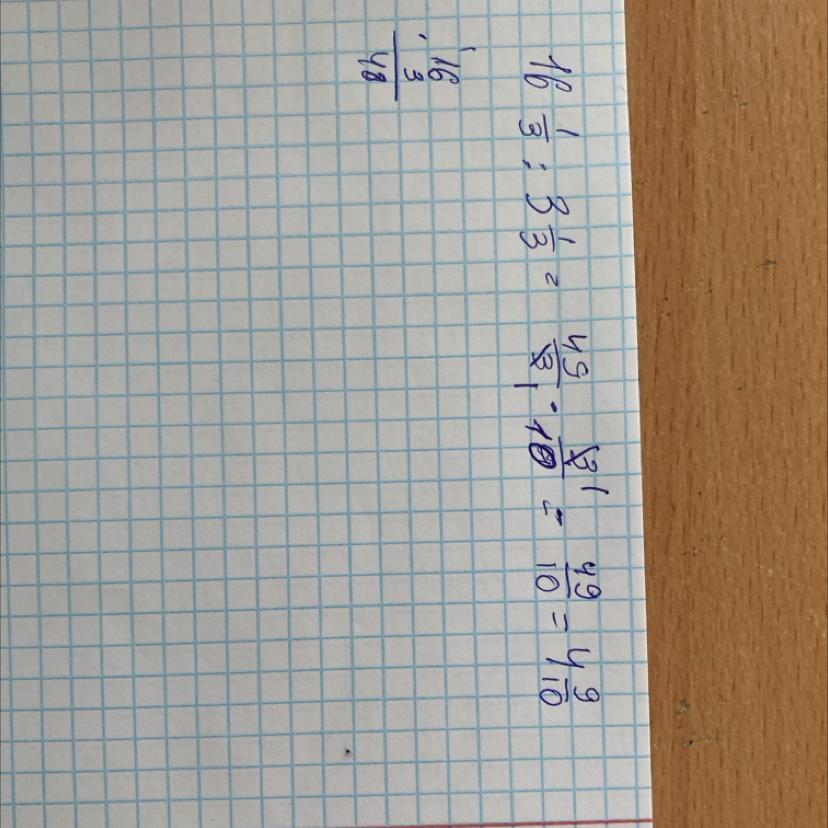 16 1/3 : 3 1/3 = 49/3 1 · 3 1/10 = 49/10 = 4 9/10
1
16
· 3
48